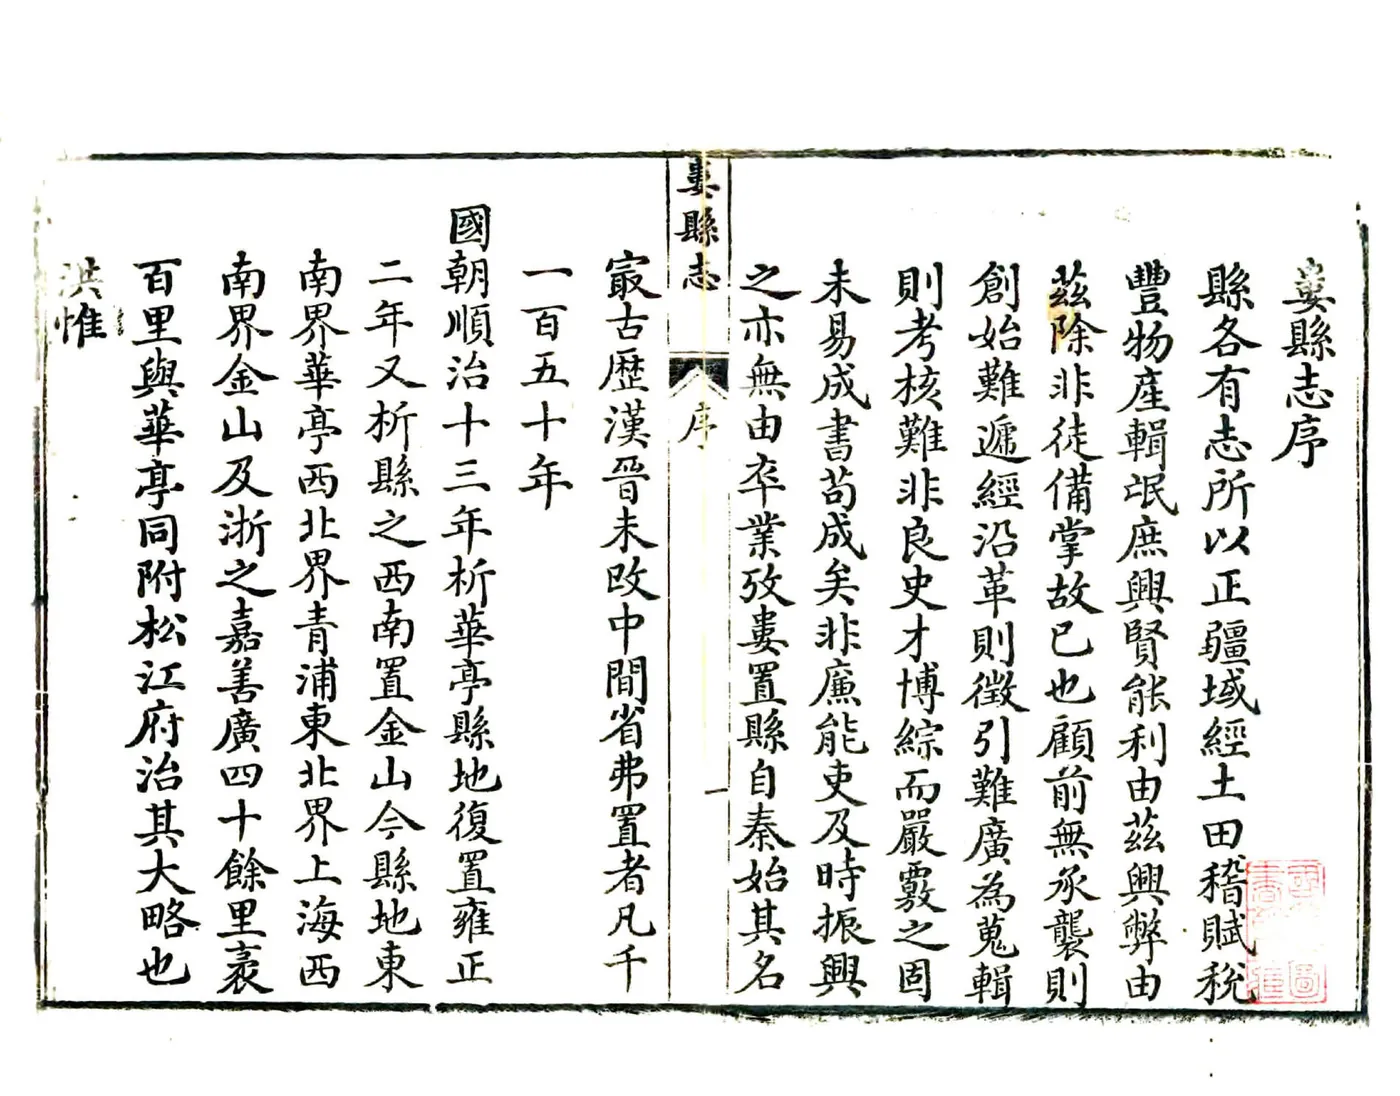 婁縣志序
縣各有志所以正疆域經土田稽賦稅
豐物產輯氓庶興賢能利由茲興弊由
茲除非徒備掌故已也顧前無承襲則
創始難遞經沿革則徵引難廣為蒐輯
則考核難非良史才博綜而嚴覈之固
未易成書苟成矣非廉能吏及時振興
之亦無由卒業攷婁置縣自秦始其名
婁縣志
序
一
最古歷漢晉未改中間省弗置者凡千
一百五十年
國朝順治十三年析華亭縣地復置雍正
二年又析縣之西南置金山今縣地東
南界華亭西北界青浦東北界上海西
南界金山及浙之嘉善廣四十餘里袤
百里與華亭同附松江府治其大略也
洪惟